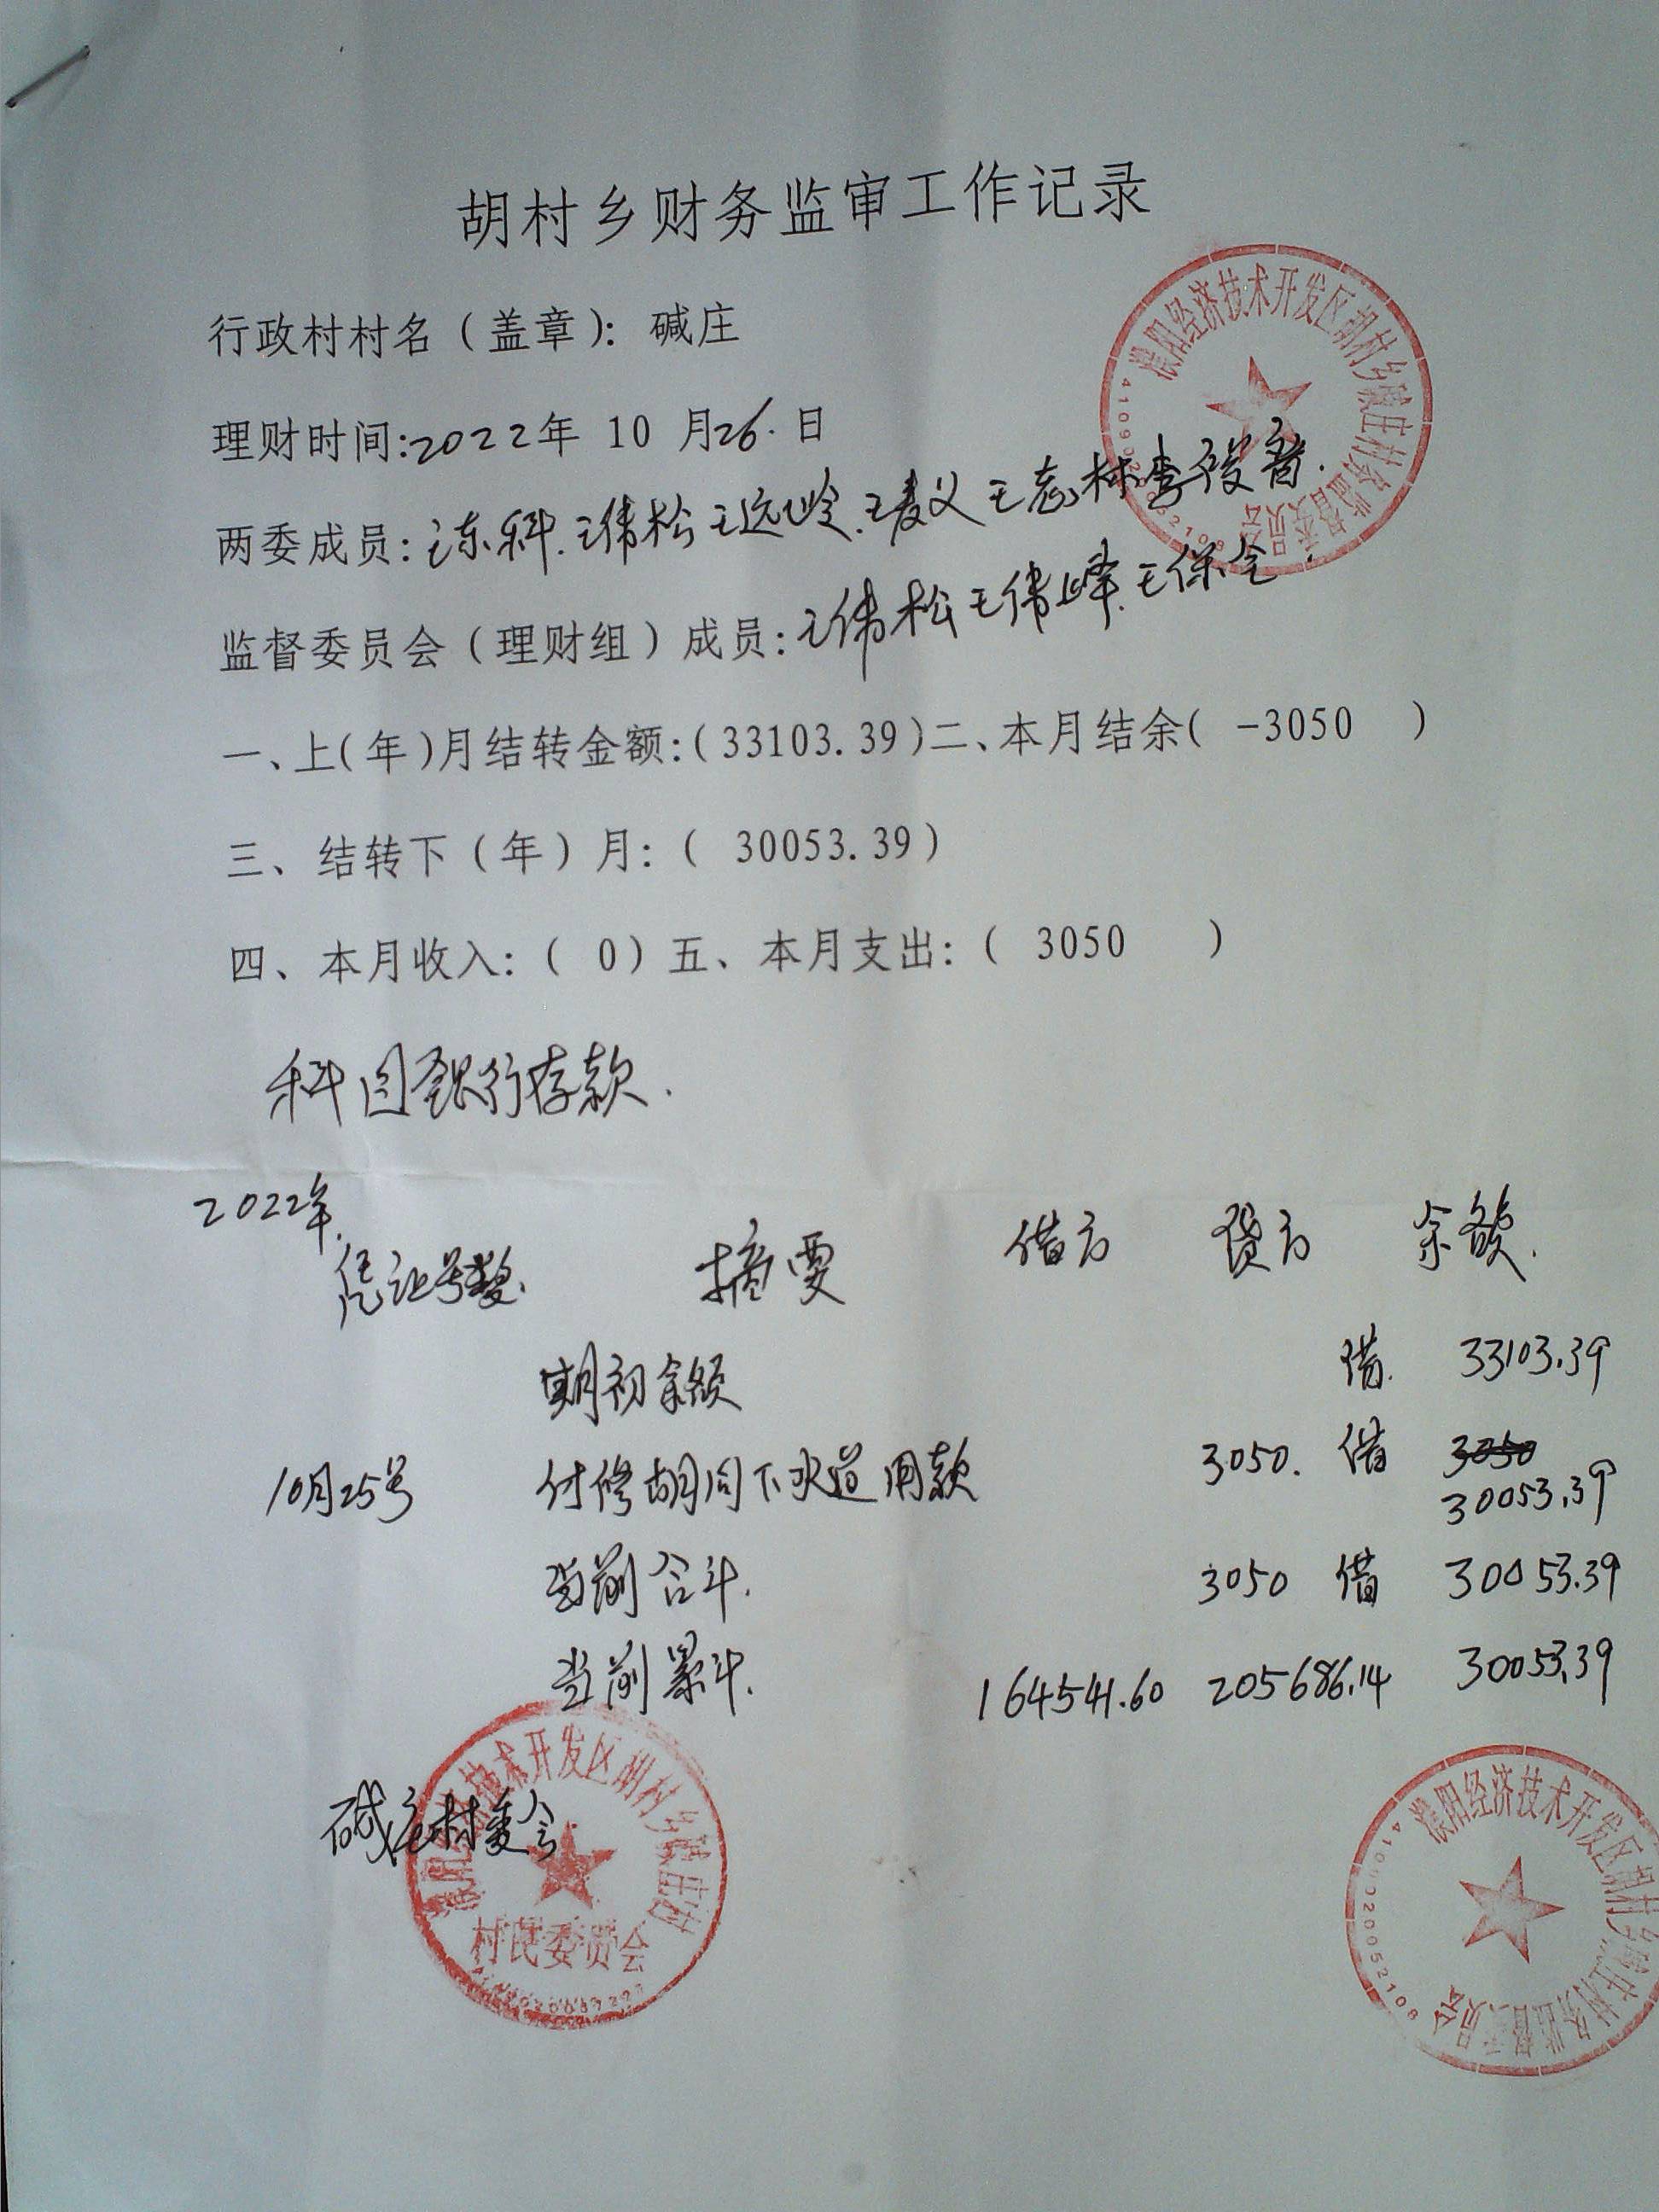 胡村乡财务监审工作记录
行政村村名（盖章）：碱庄
理财时间:2022年 10 月26.日
两委成员：王东科.王伟松王远岭.王麦义王志林李俊音.
监督委员会（理财组）成员：王伟松王伟峰.王保全.
一、上(年)月结转金额:(33103.39)二、本月结余( -3050 )
三、结转下（年）月：（ 30053.39）
四、本月收入：（ 0）五、本月支出：（ 3050 ）
科目银行存款.
2022年.
凭证号数. 摘要 借方 贷方 余额.
期初余额 借. 33103.39
10月25号 付修胡同下水道用款 3050. 借 3050
30053.39
当前合计. 3050 借 30053.39
当前累计. 164541.60 205686.14 30053.39
碱庄村委会
濮阳经济技术开发区胡村乡碱庄村务监督委员会
濮阳经济技术开发区胡村乡碱庄村
村民委员会
濮阳经济技术开发区胡村乡碱庄村务监督委员会